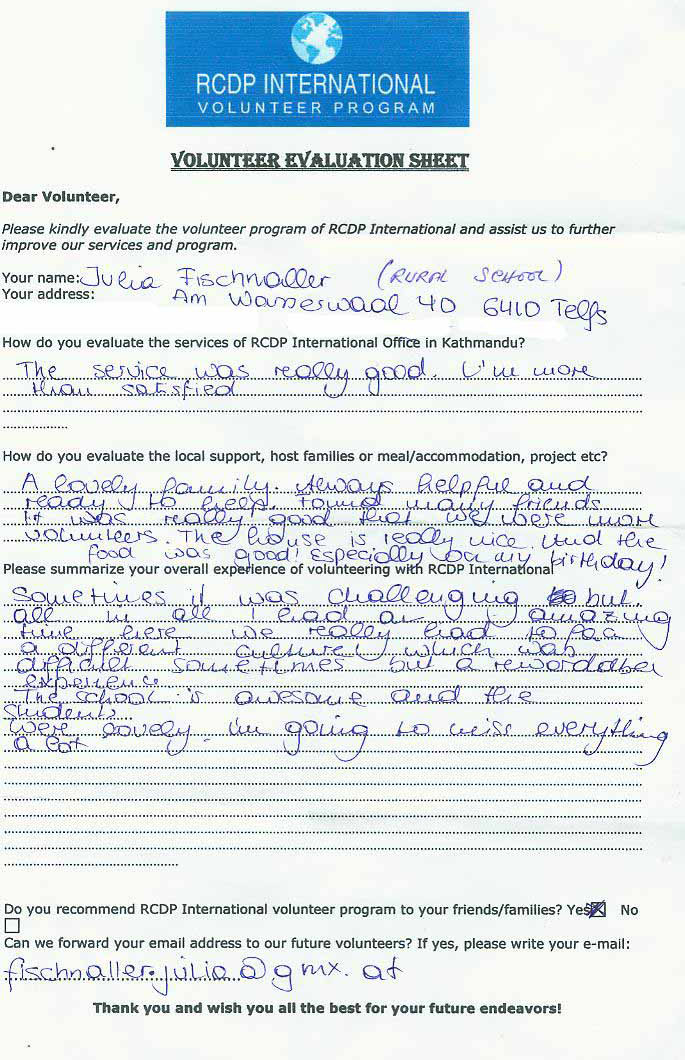 RCDP INTERNATIONAL
VOLUNTEER PROGRAM
VOLUNTEER EVALUATION SHEET
Dear Volunteer,
Please kindly evaluate the volunteer program of RCDP International and assist us to further
improve our services and program.
Your name: Julia Fischnaller (RURAL SCHOOL)
Your address: Am Wasserwaal 40 6410 Telfs
How do you evaluate the services of RCDP International Office in Kathmandu?
The service was really good. I'm more
than satisfied
How do you evaluate the local support, host families or meal/accommodation, project etc?
A lovely family. Always helpful and
ready to help. Found many friends
It was really good that we were more
volunteers. The house is really nice. And the
food was good! Especially on my birthday!
Please summarize your overall experience of volunteering with RCDP International
Sometimes it was challenging but
all in all I had an amazing
time here. We really had to face
a different culture, which was
difficult sometimes but a rewardable
experience
The school is awesome and the
students
were lovely. I'm going to miss everything
a lot
Do you recommend RCDP International volunteer program to your friends/families? Yes No
Can we forward your email address to our future volunteers? If yes, please write your e-mail:
fischnaller.julia@gmx.at
Thank you and wish you all the best for your future endeavors!